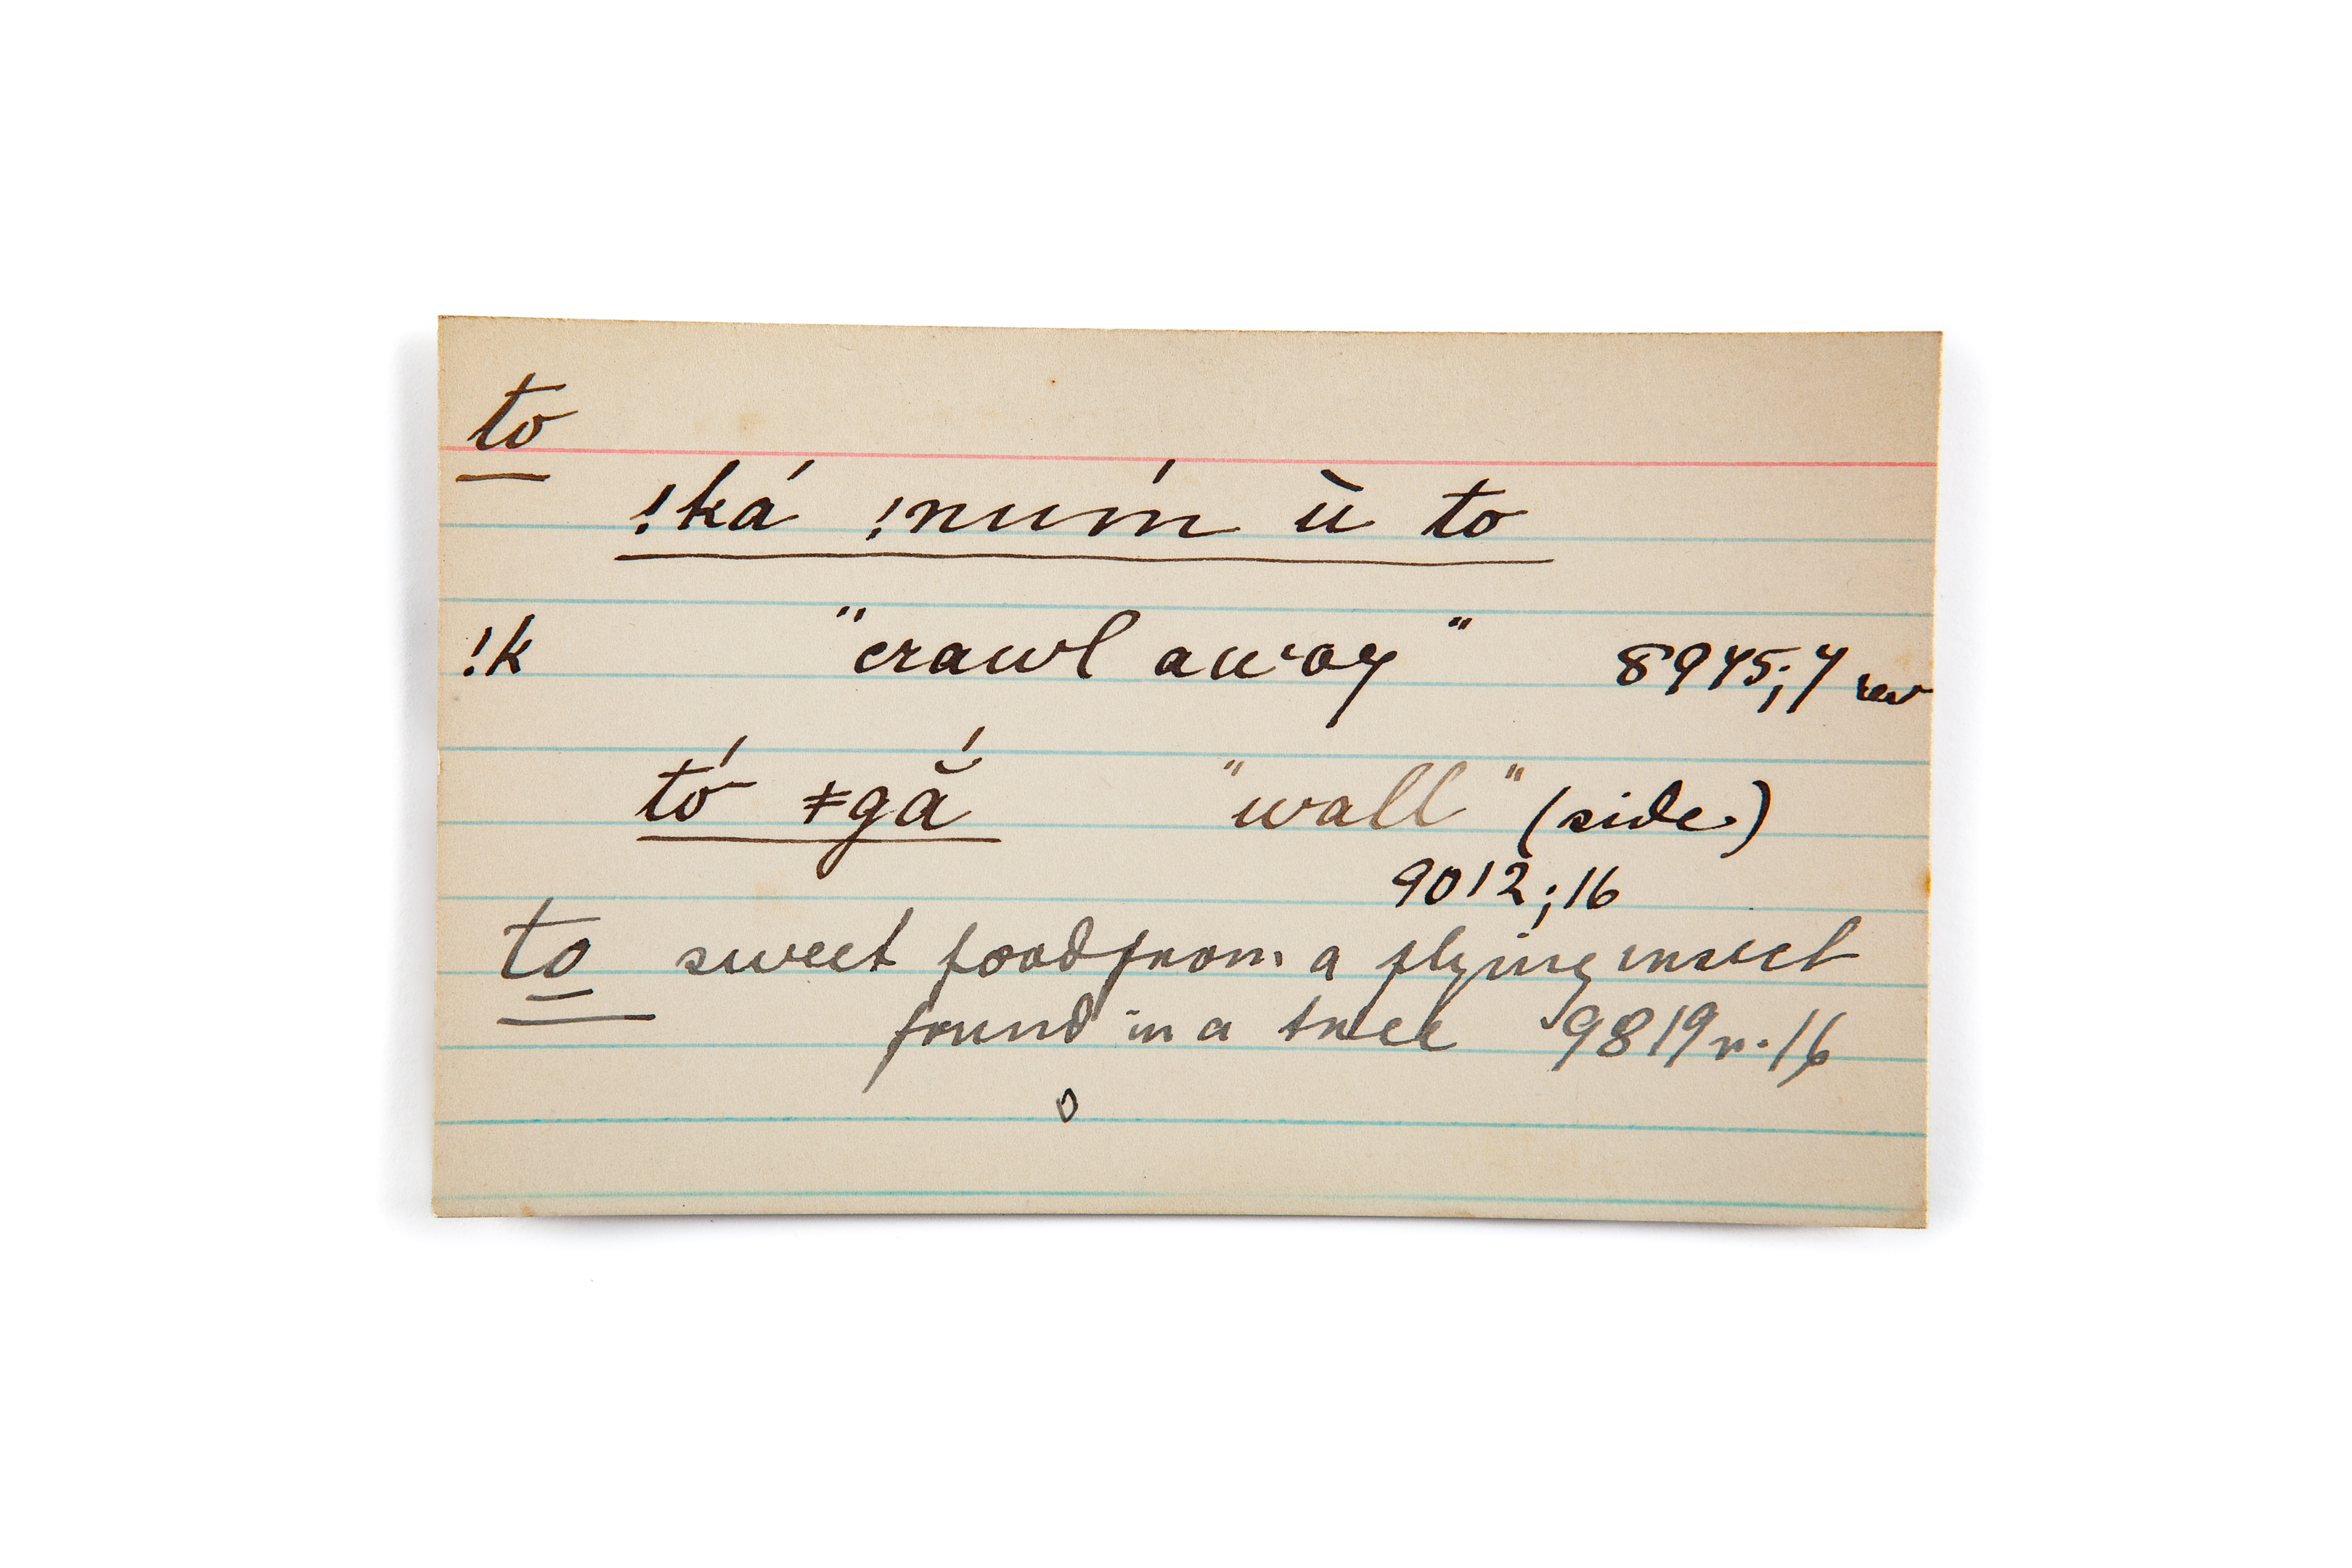 to
!ká !nuḿ ū to
!k "crawl away" 8945;4 rev
tó ǂgắ "wall" (side)
9012;16
to sweet food from a flying insect
found in a tree 9819 r. 16